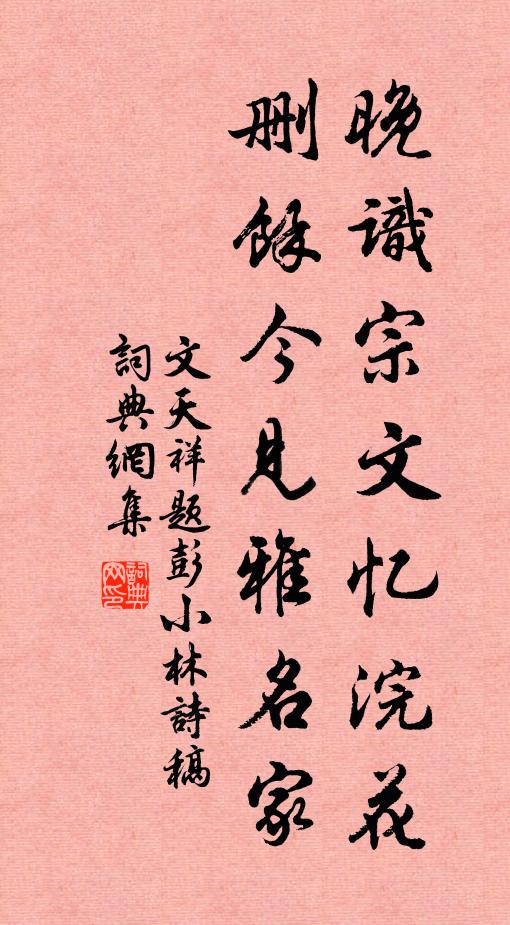 晚識宗文忆浣花
删餘今見雅名家
文天祥题彭小林詩稿
詞典網集
詞典网印